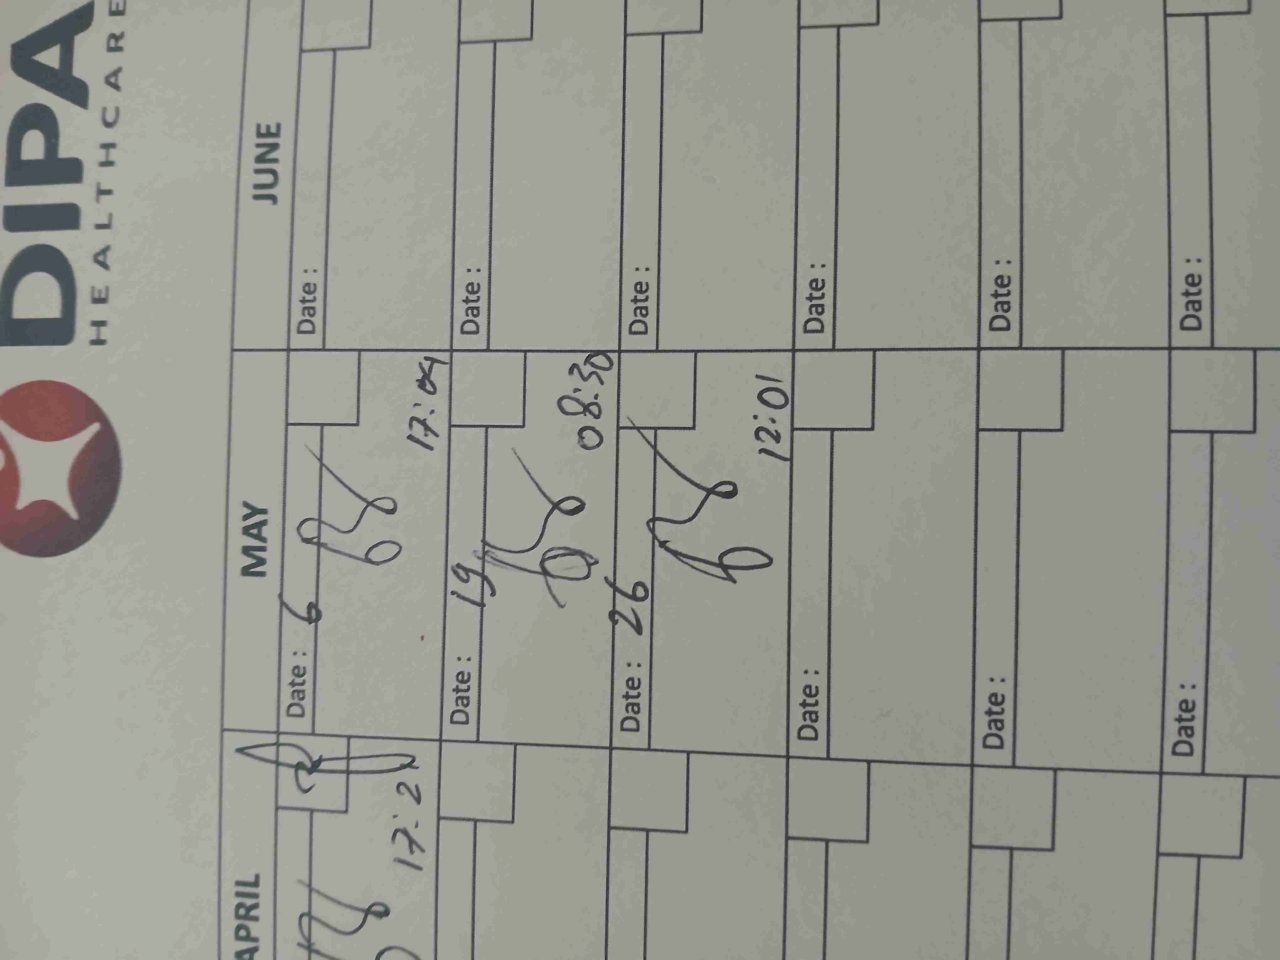 DIPA
HEALTHCARE
APRIL
MAY
JUNE
17:2
Date : 6
17:04
Date :
Date : 19
08:30
Date :
Date : 26
12:01
Date :
Date :
Date :
Date :
Date :
Date :
Date :